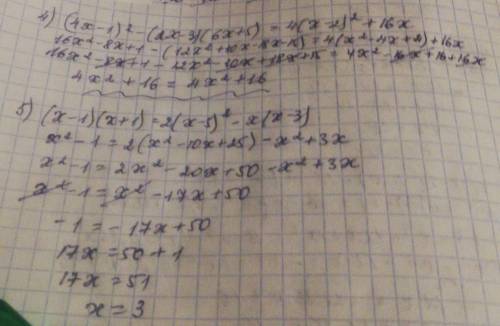 4) (4x-1)² - (2x-3)(6x+5) = 4(x-2)² + 16x
16x² - 8x + 1 - (12x² + 10x - 18x - 15) = 4(x² - 4x + 4) + 16x
16x² - 8x + 1 - 12x² - 10x + 18x + 15 = 4x² - 16x + 16 + 16x
4x² + 16 = 4x² + 16
5) (x-1)(x+1) = 2(x-5)² - x(x-3)
x² - 1 = 2(x² - 10x + 25) - x² + 3x
x² - 1 = 2x² - 20x + 50 - x² + 3x
x² - 1 = x² - 17x + 50
-1 = -17x + 50
17x = 50 + 1
17x = 51
x = 3